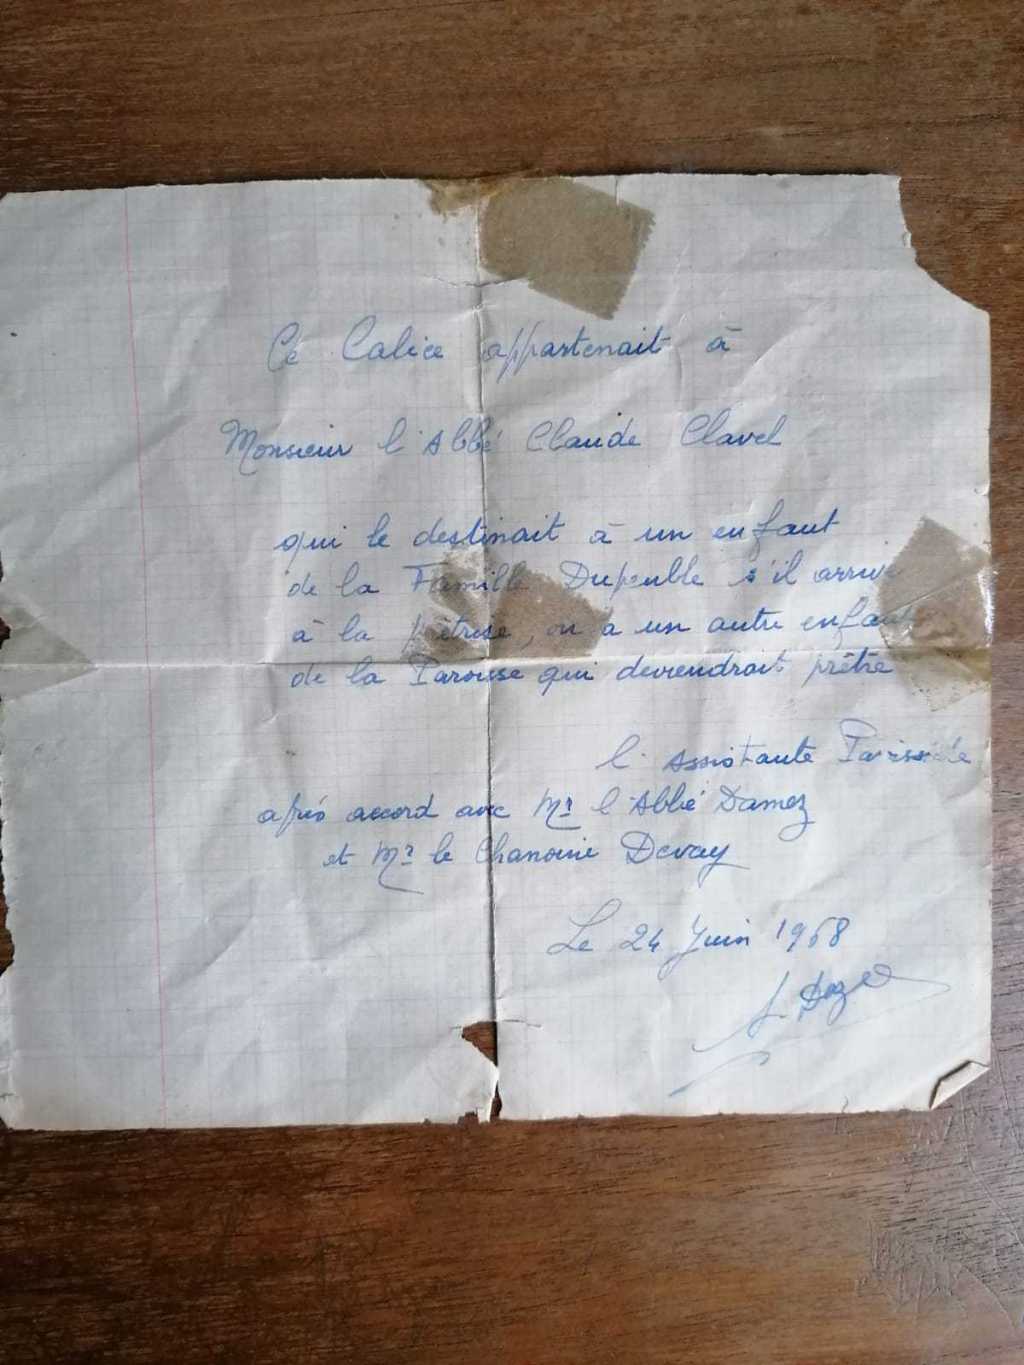 Ce Calice appartenait à
Monsieur l'Abbé Claude Clavel
qui le destinait à un enfant
de la Famille Dupeuble s'il arrive
à la prêtrise, ou à un autre enfant
de la Paroisse qui deviendrait prêtre
l'Assistante Paroissiale
après accord avec Mr l'Abbé Damez
et Mr le Chanoine Devay
Le 24 Juin 1968